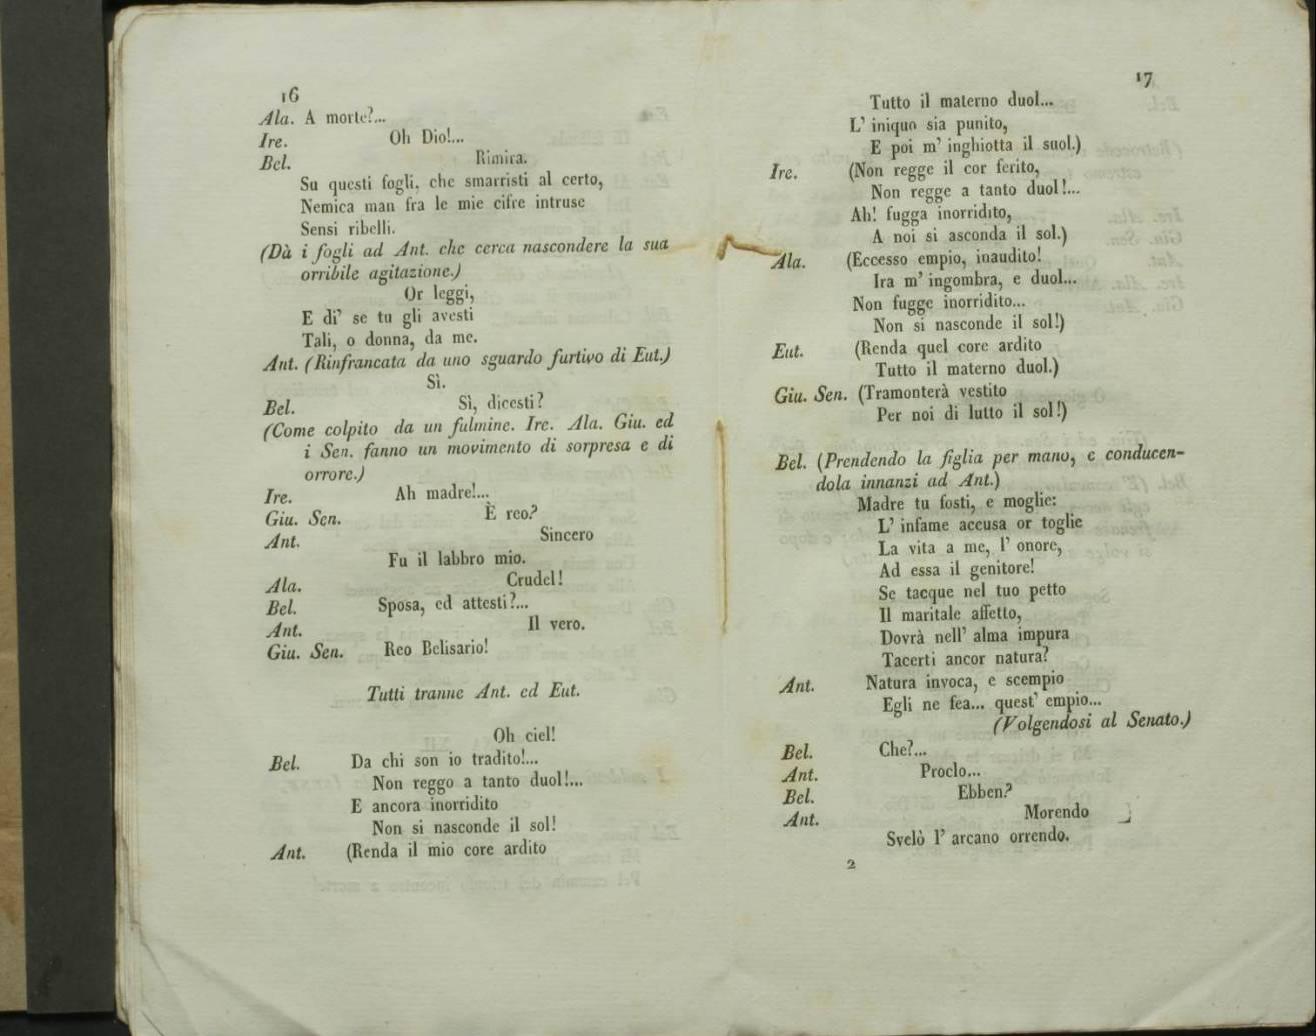 16
Ala. A morte?...
Ire. Oh Dio!...
Bel. Rimira.
Su questi fogli, che smarristi al certo,
Nemica man fra le mie cifre intruse
Sensi ribelli.
(Dà i fogli ad Ant. che cerca nascondere la sua
orribile agitazione.)
Or leggi,
E di' se tu gli avesti
Tali, o donna, da me.
Ant. (Rinfrancata da uno sguardo furtivo di Eut.)
Sì.
Bel. Sì, dicesti?
(Come colpito da un fulmine. Ire. Ala. Giu. ed
i Sen. fanno un movimento di sorpresa e di
orrore.)
Ire. Ah madre!...
Giu. Sen. È reo?
Ant. Sincero
Fu il labbro mio.
Ala. Crudel!
Bel. Sposa, ed attesti?...
Ant. Il vero.
Giu. Sen. Reo Belisario!
Tutti tranne Ant. ed Eut.
Oh ciel!
Bel. Da chi son io tradito!...
Non reggo a tanto duol!...
E ancora inorridito
Non si nasconde il sol!
Ant. (Renda il mio core ardito
17
Tutto il materno duol...
L' iniquo sia punito,
E poi m' inghiotta il suol.)
Ire. (Non regge il cor ferito,
Non regge a tanto duol!...
Ah! fugga inorridito,
A noi si asconda il sol.)
Ala. (Eccesso empio, inaudito!
Ira m' ingombra, e duol...
Non fugge inorridito...
Non si nasconde il sol!)
Eut. (Renda quel core ardito
Tutto il materno duol.)
Giu. Sen. (Tramonterà vestito
Per noi di lutto il sol!)
Bel. (Prendendo la figlia per mano, e conducen-
dola innanzi ad Ant.)
Madre tu fosti, e moglie:
L' infame accusa or toglie
La vita a me, l' onore,
Ad essa il genitore!
Se tacque nel tuo petto
Il maritale affetto,
Dovrà nell' alma impura
Tacerti ancor natura?
Ant. Natura invoca, e scempio
Egli ne fea... quest' empio...
(Volgendosi al Senato.)
Bel. Che?...
Ant. Proclo...
Bel. Ebben?
Ant. Morendo
Svelò l' arcano orrendo.
2